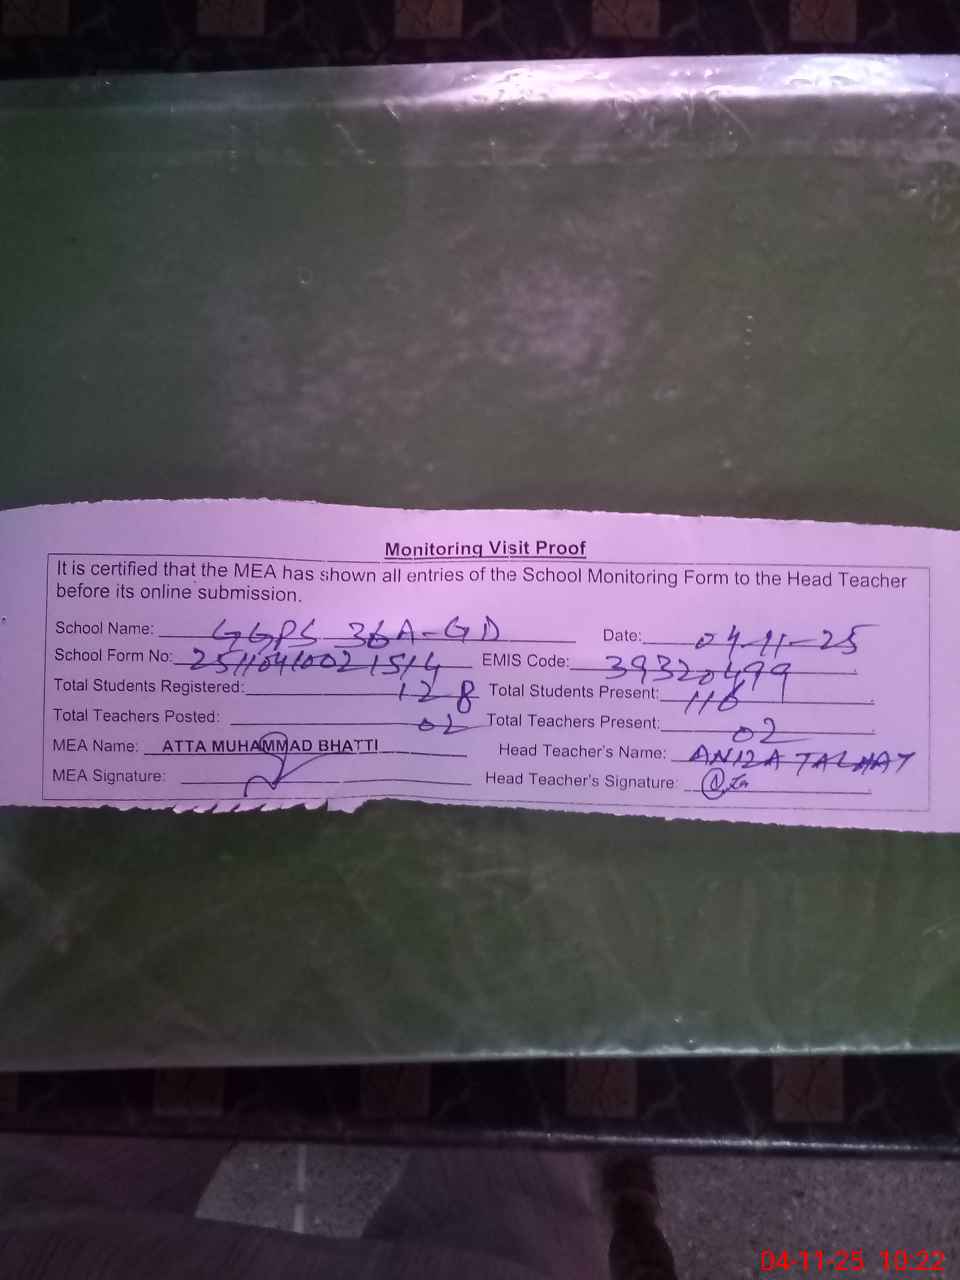 Monitoring Visit Proof
It is certified that the MEA has shown all entries of the School Monitoring Form to the Head Teacher
before its online submission.
School Name: GGPS 36A-GD Date: 04-11-25
School Form No: 25110410021514 EMIS Code: 39320499
Total Students Registered: 128 Total Students Present: 116
Total Teachers Posted: 02 Total Teachers Present: 02
MEA Name: ATTA MUHAMMAD BHATTI Head Teacher's Name: ANIZA TALHAT
MEA Signature: Head Teacher's Signature:
04-11-25 10:22